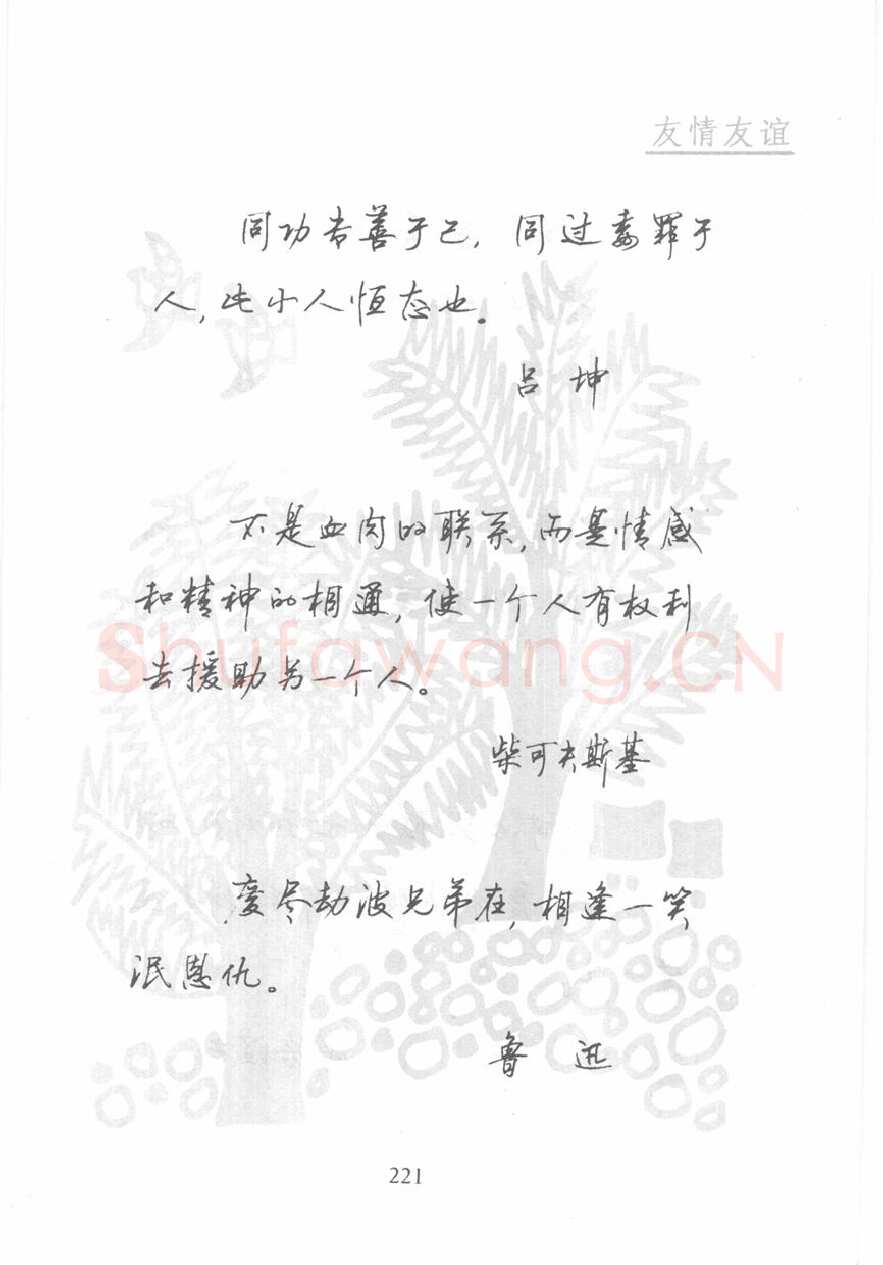 友情友谊
同功者善于己，同过委罪于
人，此小人恒态也。
吕坤
不是血肉的联系，而是情感
和精神的相通，使一个人有权利
去援助另一个人。
Shufawang.CN
柴可夫斯基
度尽劫波兄弟在，相逢一笑
泯恩仇。
鲁迅
221